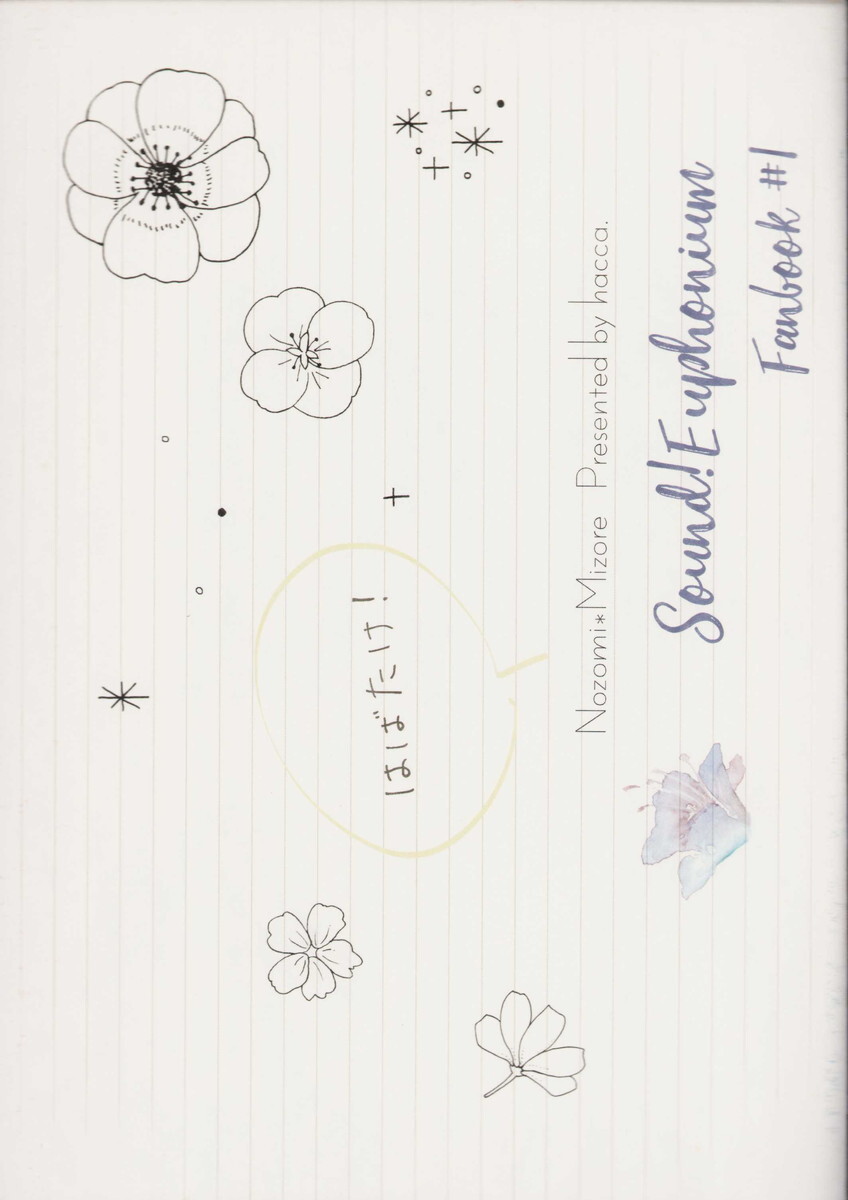 はばたけ!
Nozomi*Mizore Presented by hacca.
Sound!Euphonium
Fanbook #1